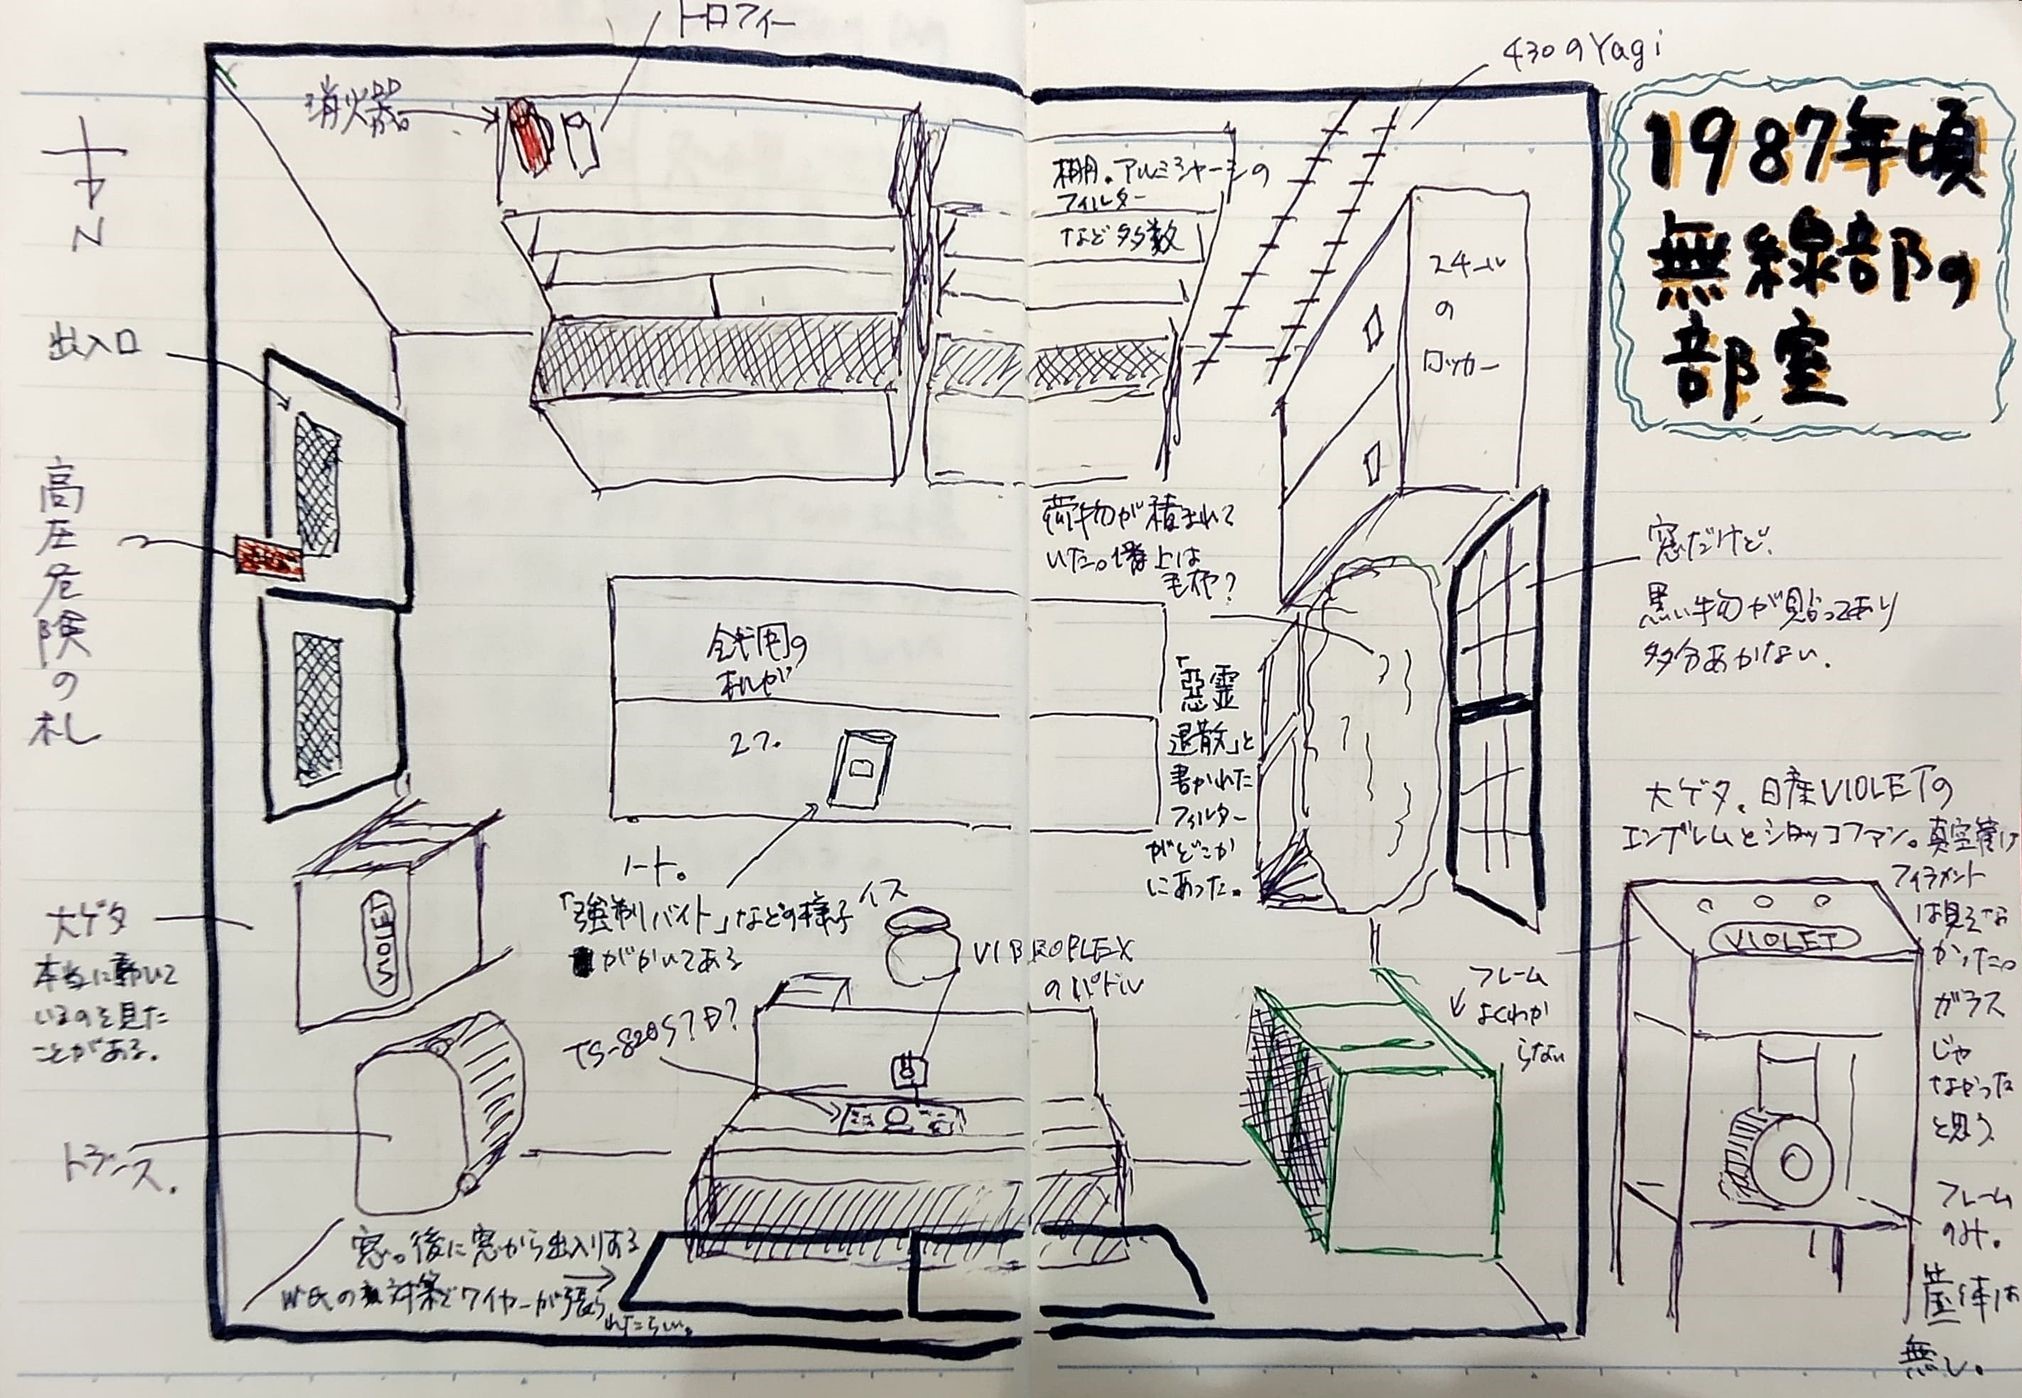 1987年頃
無線部の
部室
トロフィー
消火器。
430のYagi
N
棚。アルミシャーシの
フィルター
など多数
スチール
の
ロッカー
出入口
高圧危険の札
荷物が積まれて
いた。1番上は
毛布?
窓だけど、
黒い物が貼ってあり
多分あかない。
会議用の
机が
2つ。
「悪霊
退散」と
書かれた
フィルター
がどこか
にあった。
ノート。
「強制バイト」などの様子
がかいてある
イス
VIBROPLEX
のパドル
TS-820S?D?
大ゲタ
本当に動いて
いるのを見た
ことがある。
VIOLET
トランス。
窓。後に窓から出入りする
W氏の対策でワイヤーが張ら
れたらしい。
大ゲタ。日産VIOLETの
エンブレムとシロッコファン。真空管は
フィラメント
は見えな
かった。
ガラス
じゃ
なかった
と思う。
VIOLET
フレーム
よくわか
らない
フレーム
のみ。
筐体は
無し。